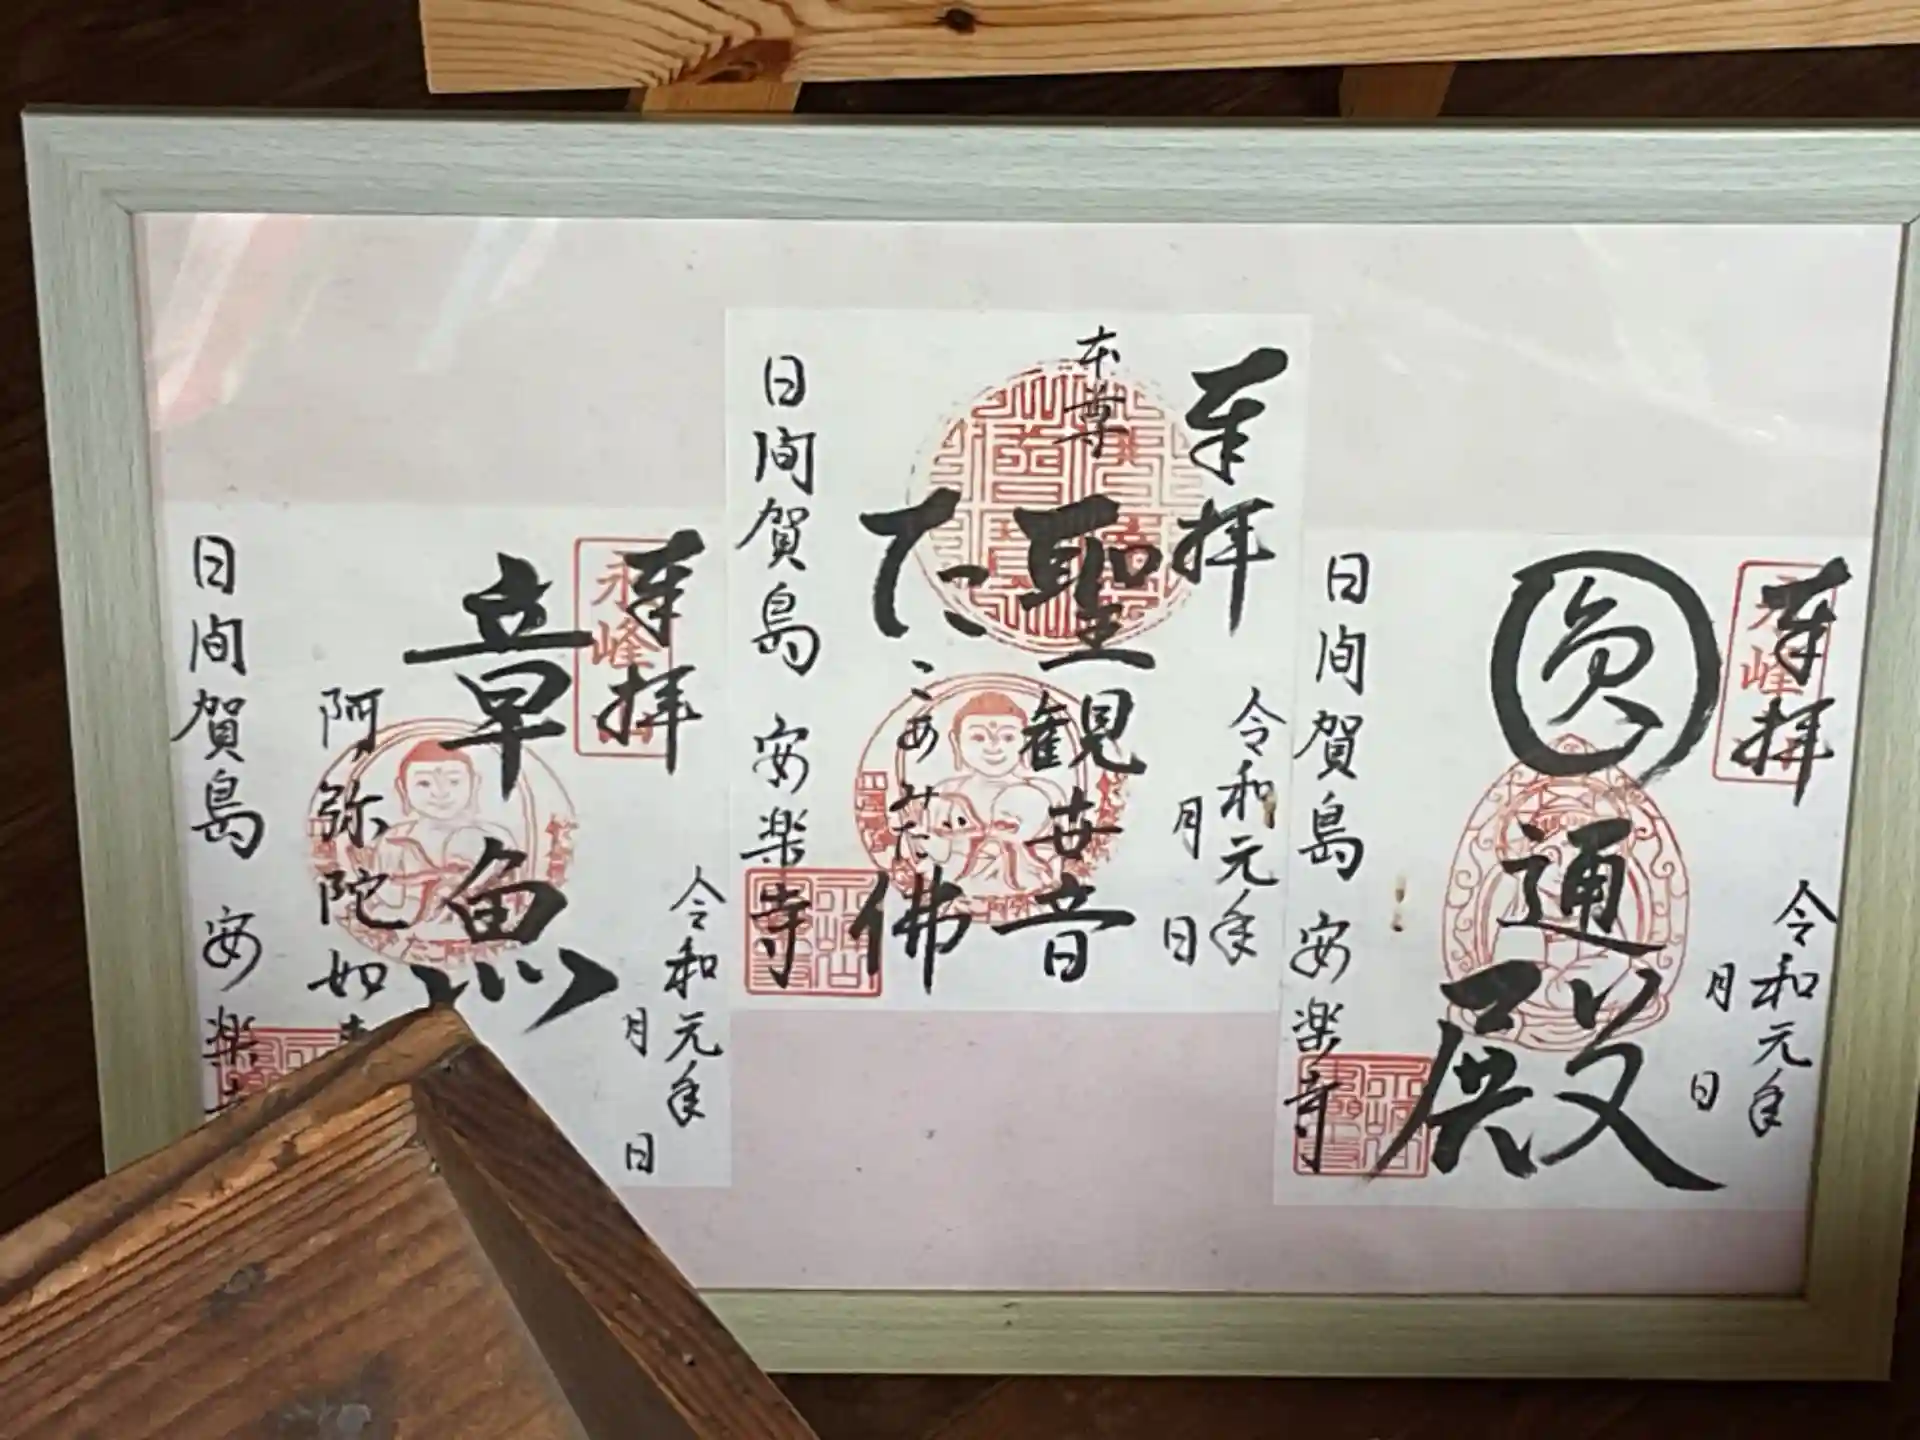 奉拝
令和元年
月
日
圓通殿
日間賀島 安楽寺
奉拝
令和元年
月
日
本尊
聖観世音
たこあみだ佛
日間賀島 安楽寺
奉拝
永峰
令和元年
月
日
章魚
阿弥陀如
日間賀島 安楽